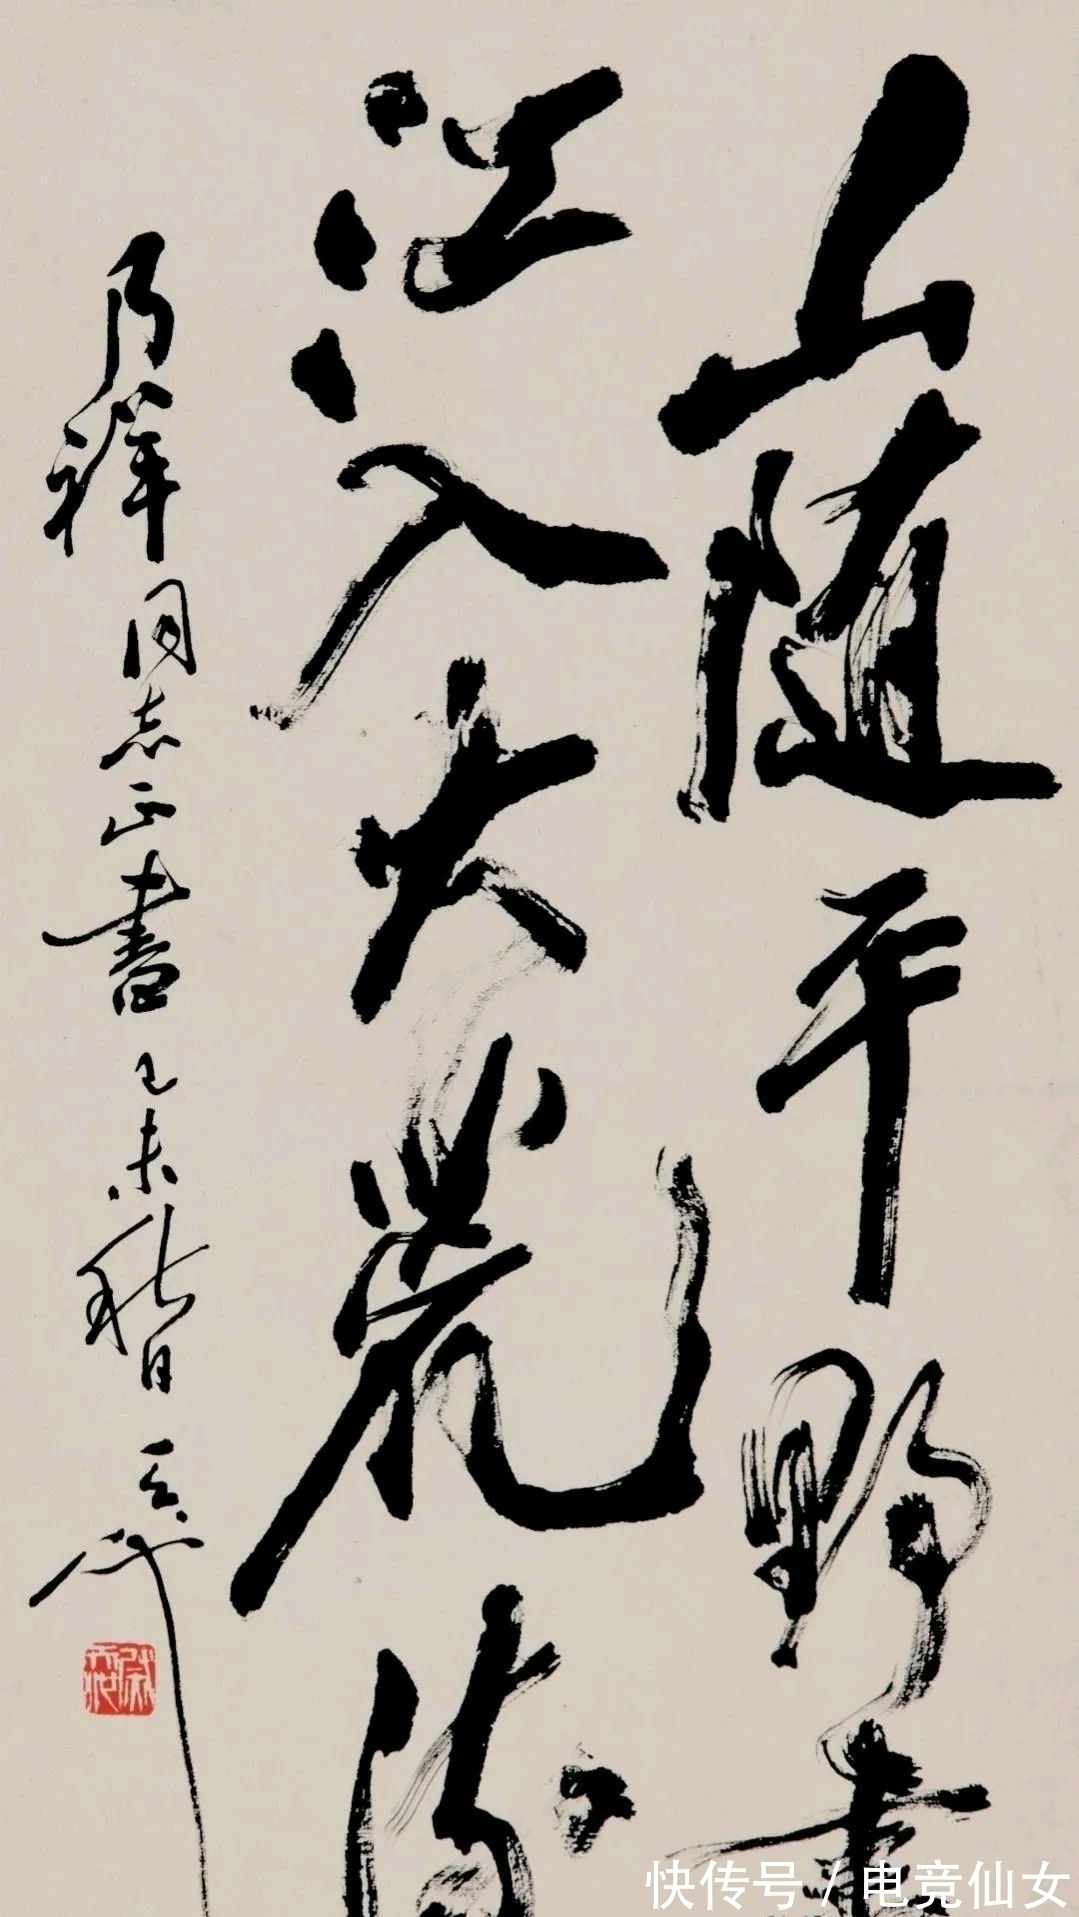 山随平野盡
江入大荒流
乃祥同志正書 己未秋日
快传号 / 电竞仙女